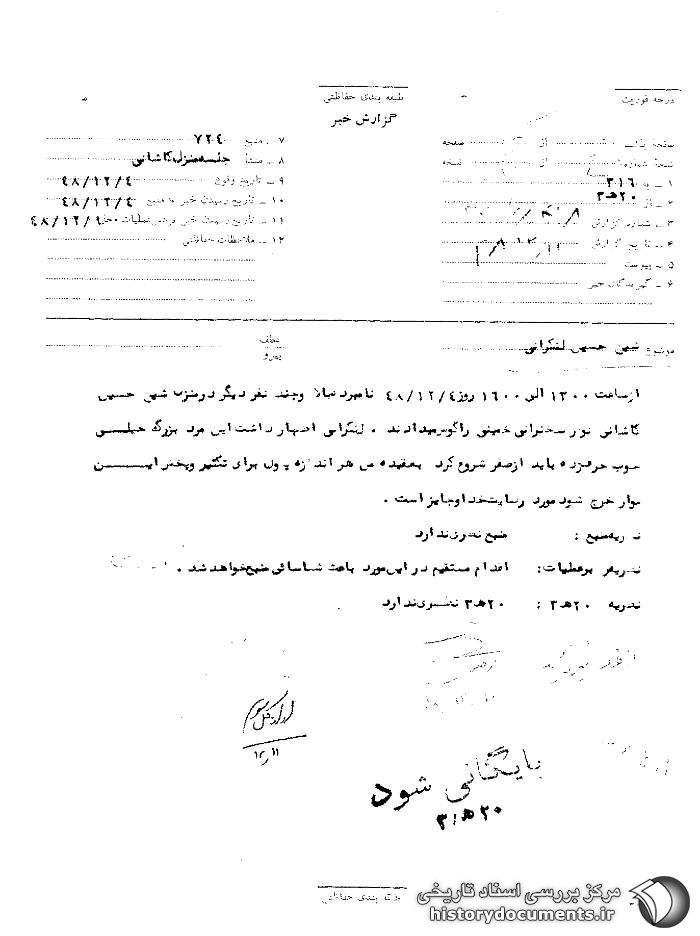 درجه فوریت
طبقه بندی حفاظتی
گزارش خبر
صفحه از صفحه
نسخه شماره از نسخه
۱ – به ۳۱۶
۲ – از ۲۰ﻫ۳
۳ – شماره گزارش
۴ – تاریخ گزارش
۵ – پیوست
۶ – گیرندگان خبر
۷ – منبع ۷۲۴۰
۸ – منشأ جلسه منزل کاشانی
۹ – تاریخ وقوع ۴۸/۱۲/۴
۱۰ – تاریخ رسیدن خبر به منبع ۴۸/۱۲/۴
۱۱ – تاریخ رسیدن خبر برهبر عملیات ۴۸/۱۲/۹
۱۲ – ملاحظات حفاظتی
موضوع شیخ حسین لنکرانی
عطف
پیرو
از ساعت ۱۳۰۰ الی ۱۶۰۰ روز ۴۸/۱۲/۴ نامبرده بالا و چند نفر دیگر در منزل شیخ حسین
کاشانی نوار سخنرانی خمینی را گوش میدادند . لنکرانی اظهار داشت این مرد بزرگ خیلی
خوب حرف زده باید از صفر شروع کرد بعقیده من هر اندازه پول برای تکثیر و پخش ایــن
نوار خرج شود مورد رضایت خدا و جایز است .
نظریه منبع : منبع نظری ندارد
نظریه رهبر عملیات : اقدام مستقیم در این مورد باعث شناسائی منبع خواهد شد .
نظریه ۲۰ﻫ۳ : ۲۰ﻫ۳ نظری ندارد
اداره کل سوم
۱۲/۱۱
بایگانی شود
۲۰ﻫ۳
طبقه بندی حفاظتی
مرکز بررسی اسناد تاریخی
historydocuments.ir